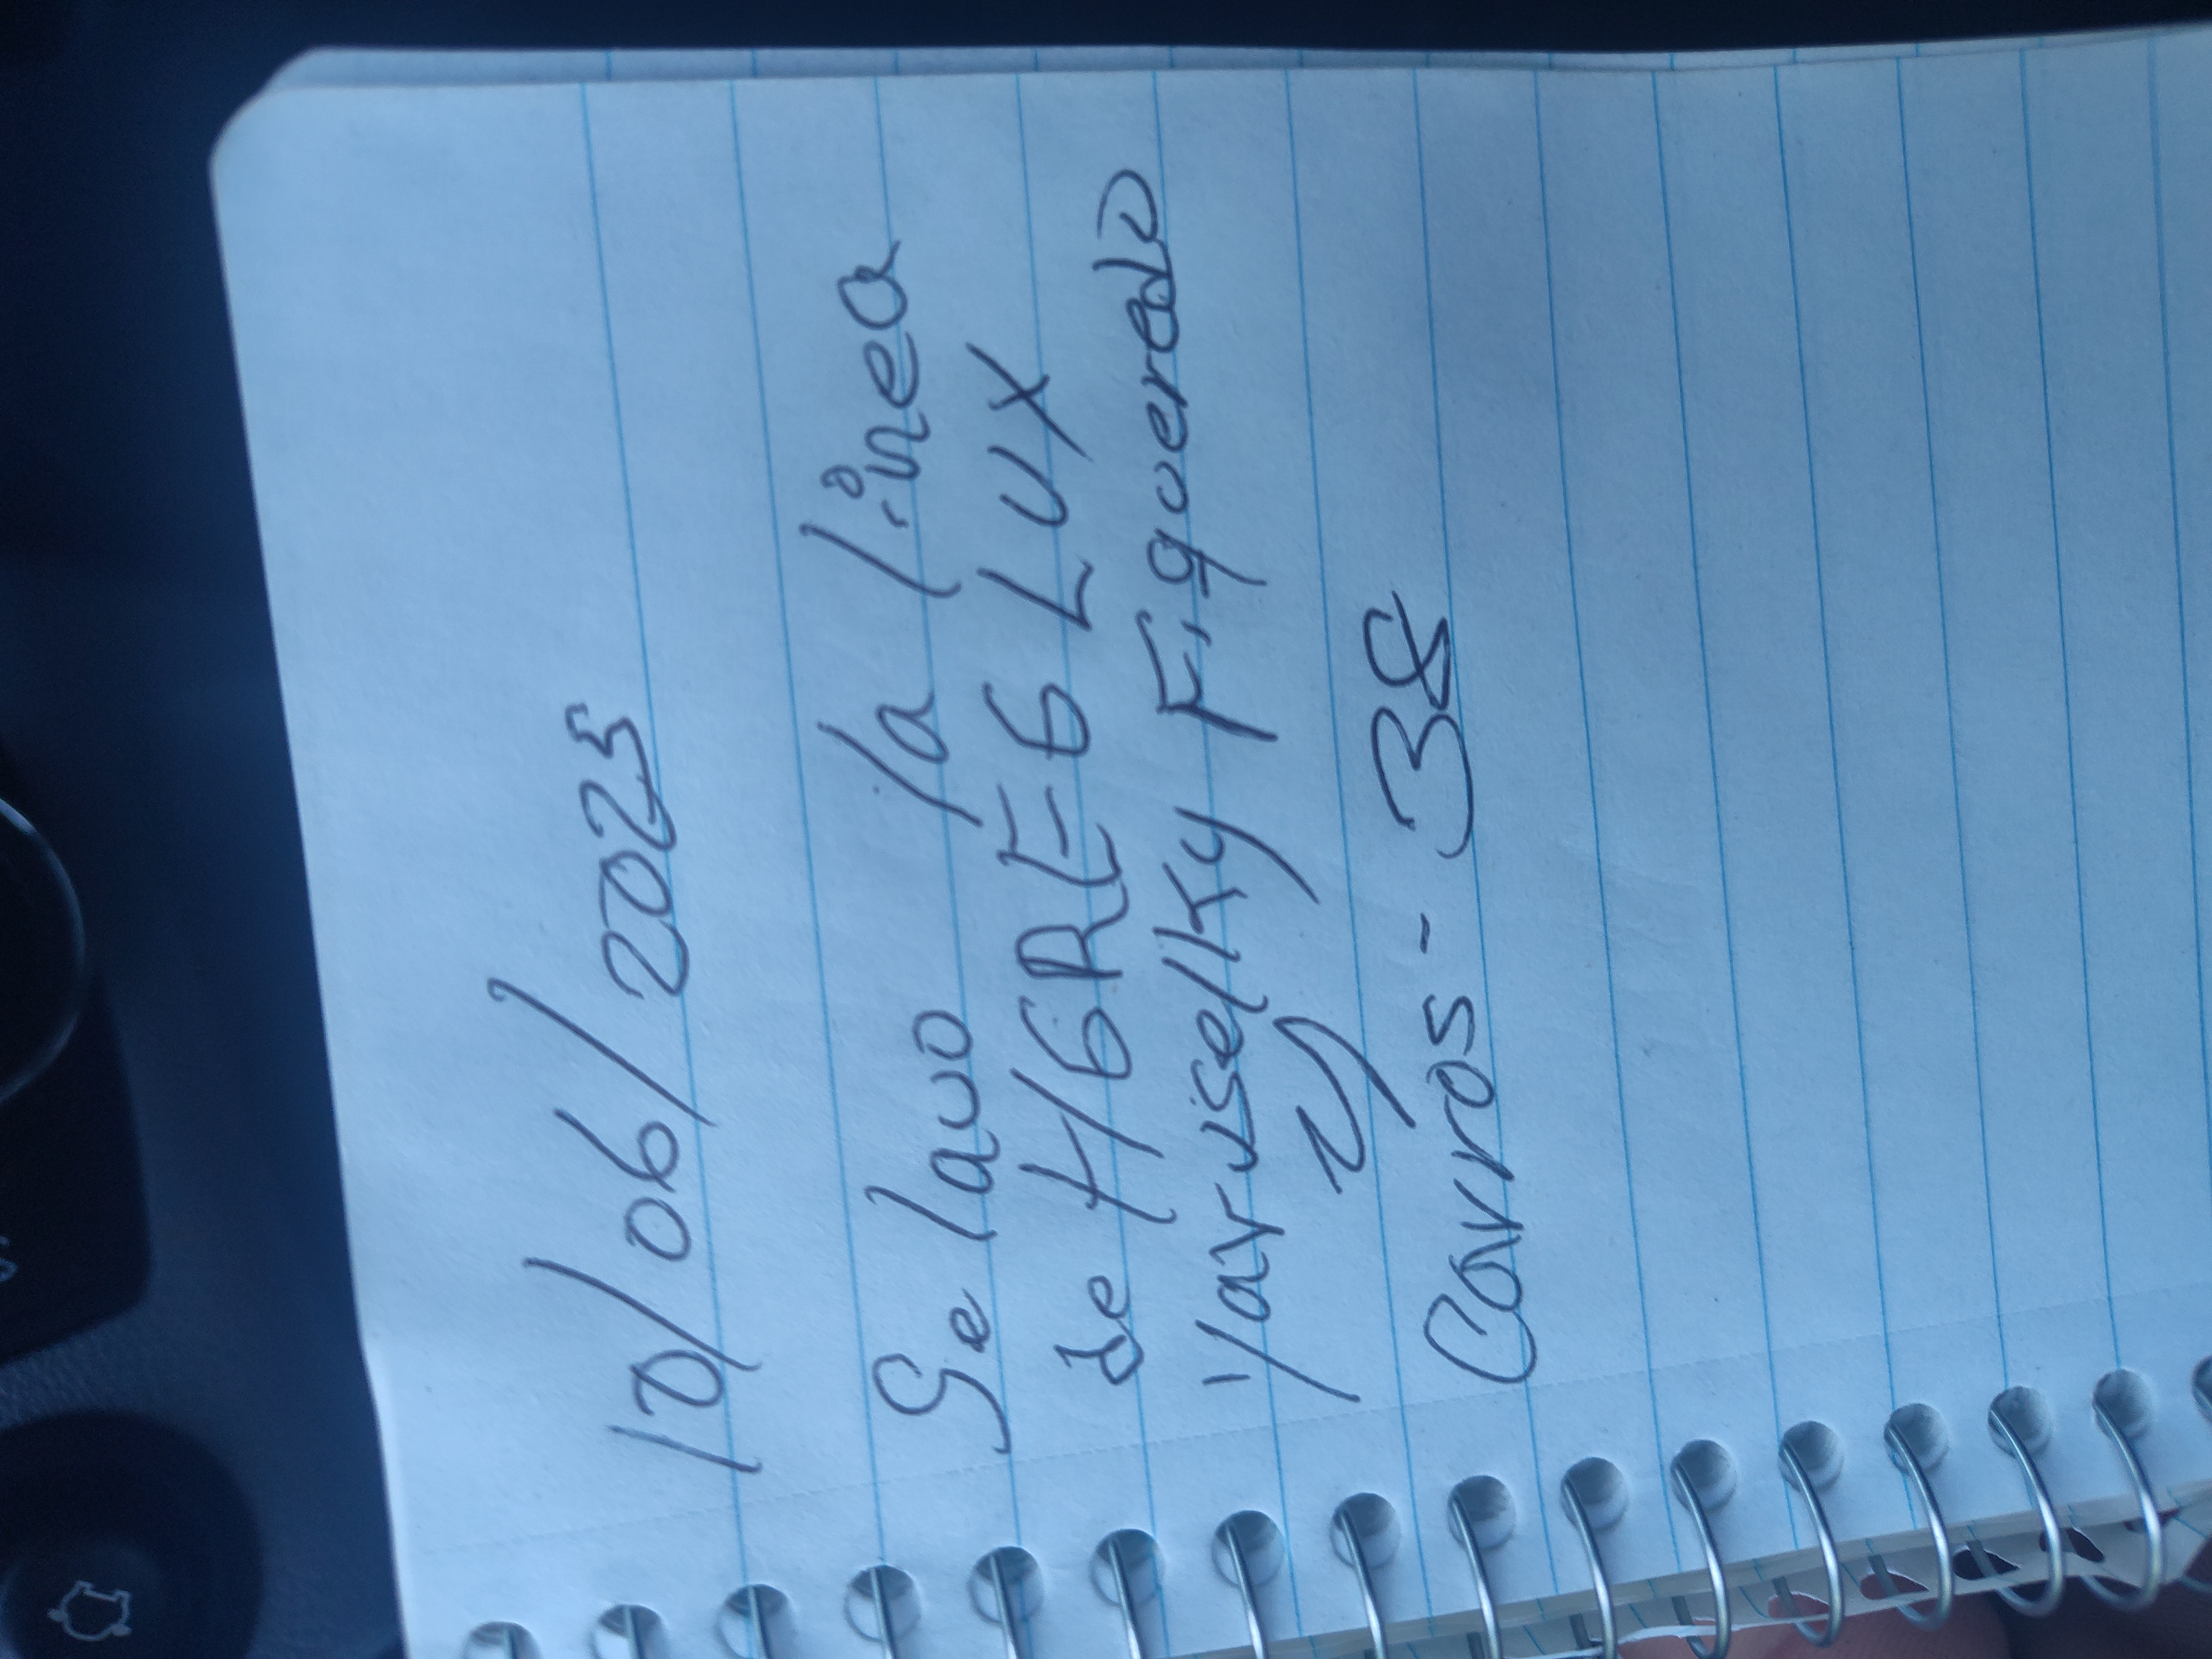 10/06/2025
Se lavo la linea
de HGREG LUX
Yaruselky Figueredo
y
Carros - 38